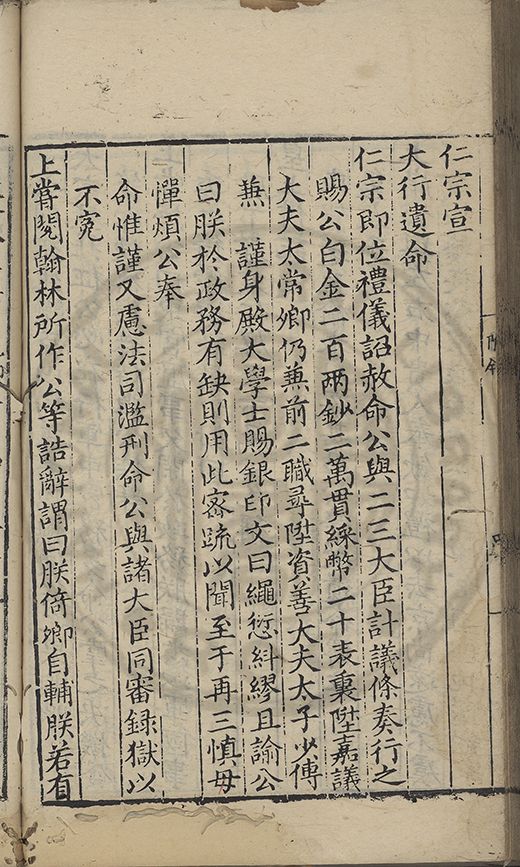 仁宗宣
大行遺命
仁宗即位禮儀詔赦命公與二三大臣計議條奏行之
賜公白金二百兩鈔二萬貫綵幣二十表裏陞嘉議
大夫太常卿仍兼前二職尋陞資善大夫太子少傅
兼　謹身殿大學士賜銀印文曰繩愆糾繆且諭公
曰朕於政務有缺則用此密疏以聞至于再三慎毋
憚煩公奉
命惟謹又慮法司濫刑命公與諸大臣同審録獄以
不寃
上嘗閱翰林所作公等誥辭謂曰朕倚卿自輔朕若有
附錄